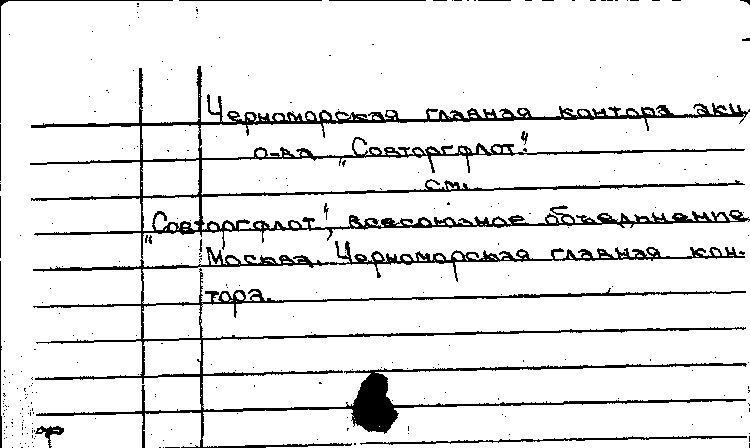 Черноморская главная контора акц.
о-ва „Совторгфлот".
см.
„Совторгфлот", всесоюзное объединение
Москва. Черноморская главная кон-
тора.